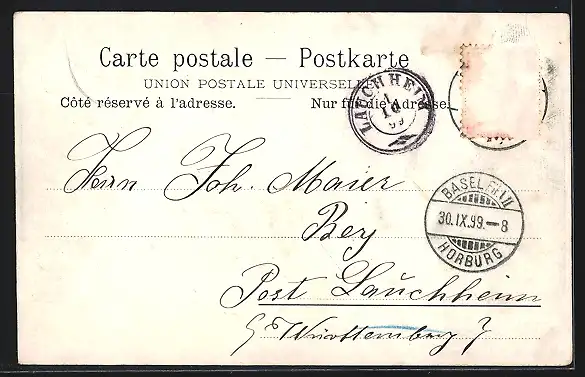 Carte postale — Postkarte
UNION POSTALE UNIVERSELLE
Côté réservé à l'adresse. Nur für die Adresse.
LAUCHHEIM
1
10
99
BASEL
30.IX.99.–8
HORBURG
Herrn Joh. Maier
Bey
Post Lauchheim
Württemberg